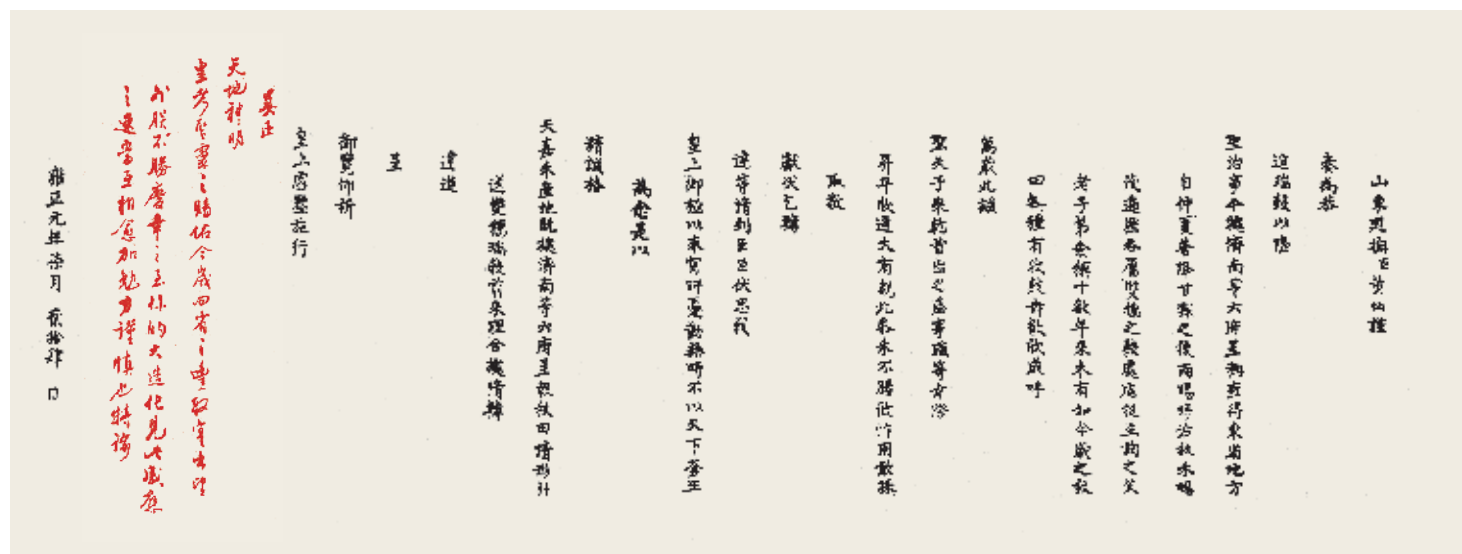 山東巡撫臣黃炳謹
奏為恭
進瑞穀以慶
聖治事今據濟南等六府呈稱竊得東省地方
自仲夏普降甘霖之後雨暘時若秋禾暢
茂遍野各屬雙穗之穀處處挺生詢之父
老子弟僉稱十數年來未有如今歲之秋
田各種有收歡欣感呼
萬歲此誠
聖天子乘乾首出之盛事職等幸際
昇平欣逢大有覩此嘉禾不勝欣忭用敢採
取敬
獻伏乞轉
達等情到臣臣伏思我
皇上御極以來宵旰憂勤無時不以天下蒼生
為念是以
精誠格
天嘉禾產地既據濟南等六府呈報秋田情形并
送雙穗瑞穀前來理合據情轉
達進
呈
御覽仰祈
皇上睿鑒施行
天地神明
皇考聖靈之賜佑今歲四省之豐收實出望
外朕不勝慶幸之至你的大造化見此感應
之速當互相愈加勉力謹慎也特諭
雍正元年柒月 貳拾肆 日